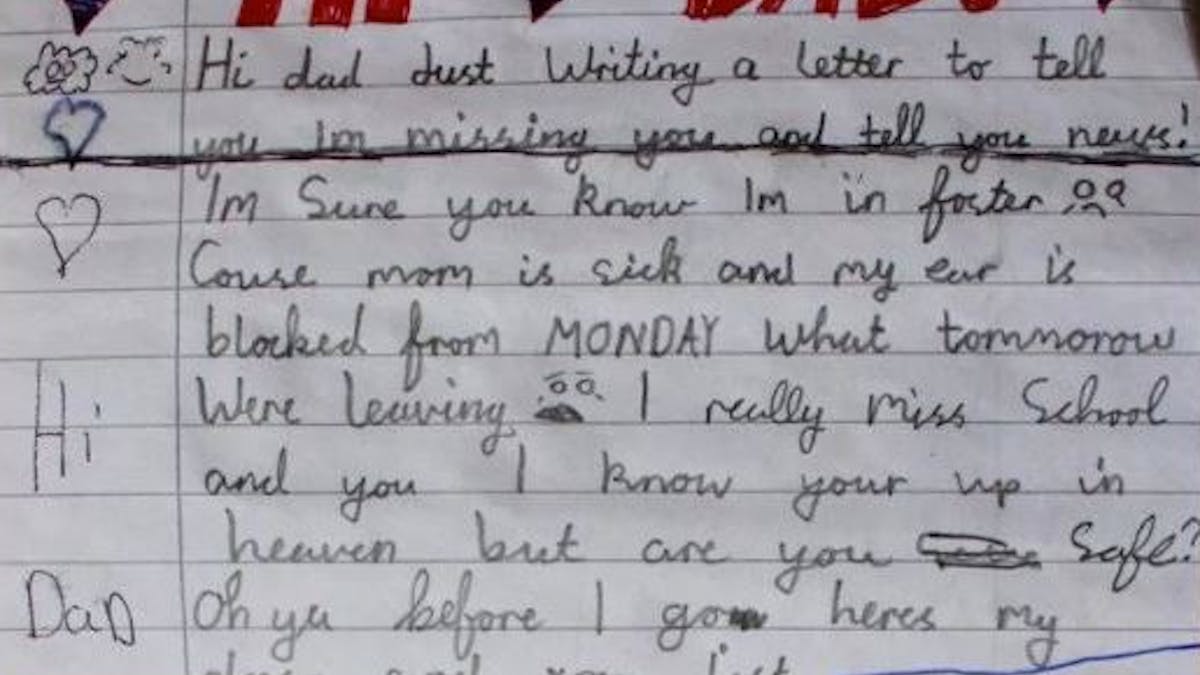 HI DAD!
Hi dad Just Writing a letter to tell
you Im missing you and tell you news!
Im Sure you know Im in foster
Couse mom is sick and my ear is
blocked from MONDAY What tommorow
Hi
Were leaving I really miss School
and you I know your up in
heaven but are you Safe?
Dad
Oh ya before I go heres my
and list